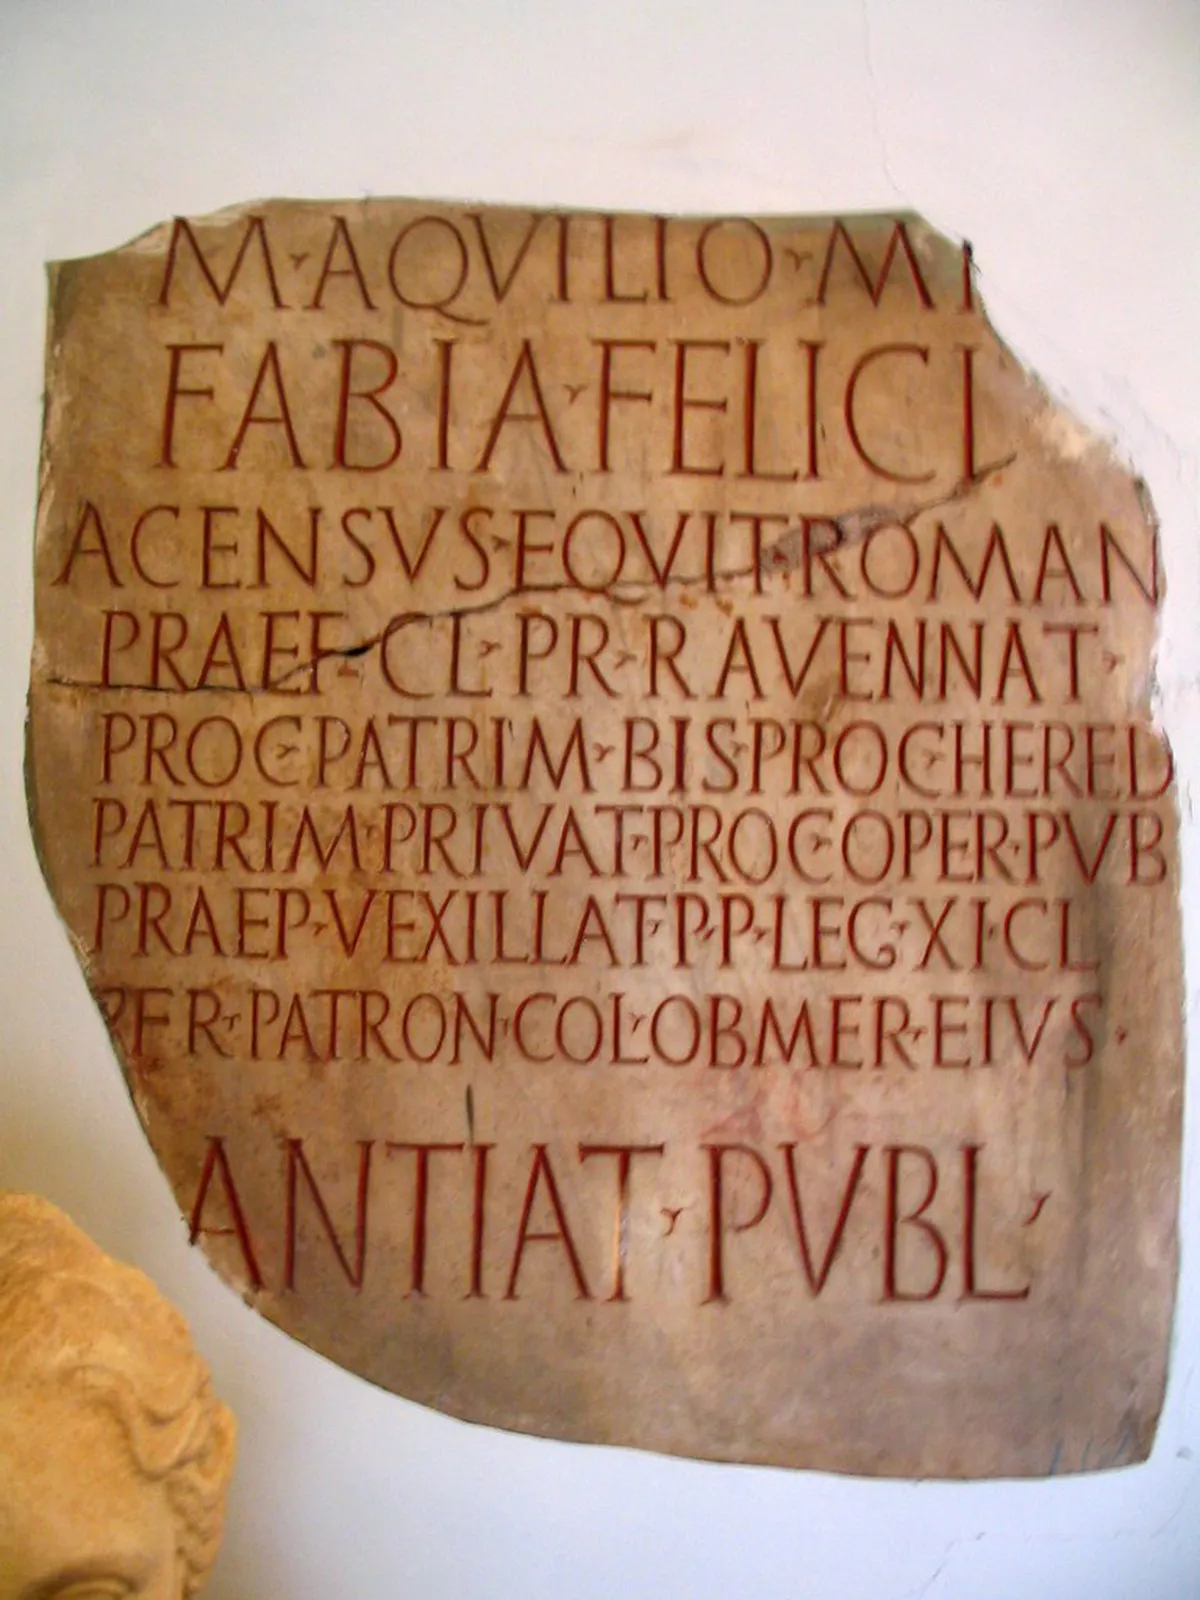 M·AQVILIO·M
FABIA·FELICI
ACENSVS·EQVIT·ROMAN
PRAEF·CL·PR·RAVENNAT·
PROC·PATRIM·BIS·PROC·HERED
PATRIM·PRIVAT·PROC·OPER·PVB
PRAEP·VEXILLAT·P·P·LEG·XI·CL
PER·PATRON·COL·OB·MER·EIVS·
ANTIAT·PVBL·